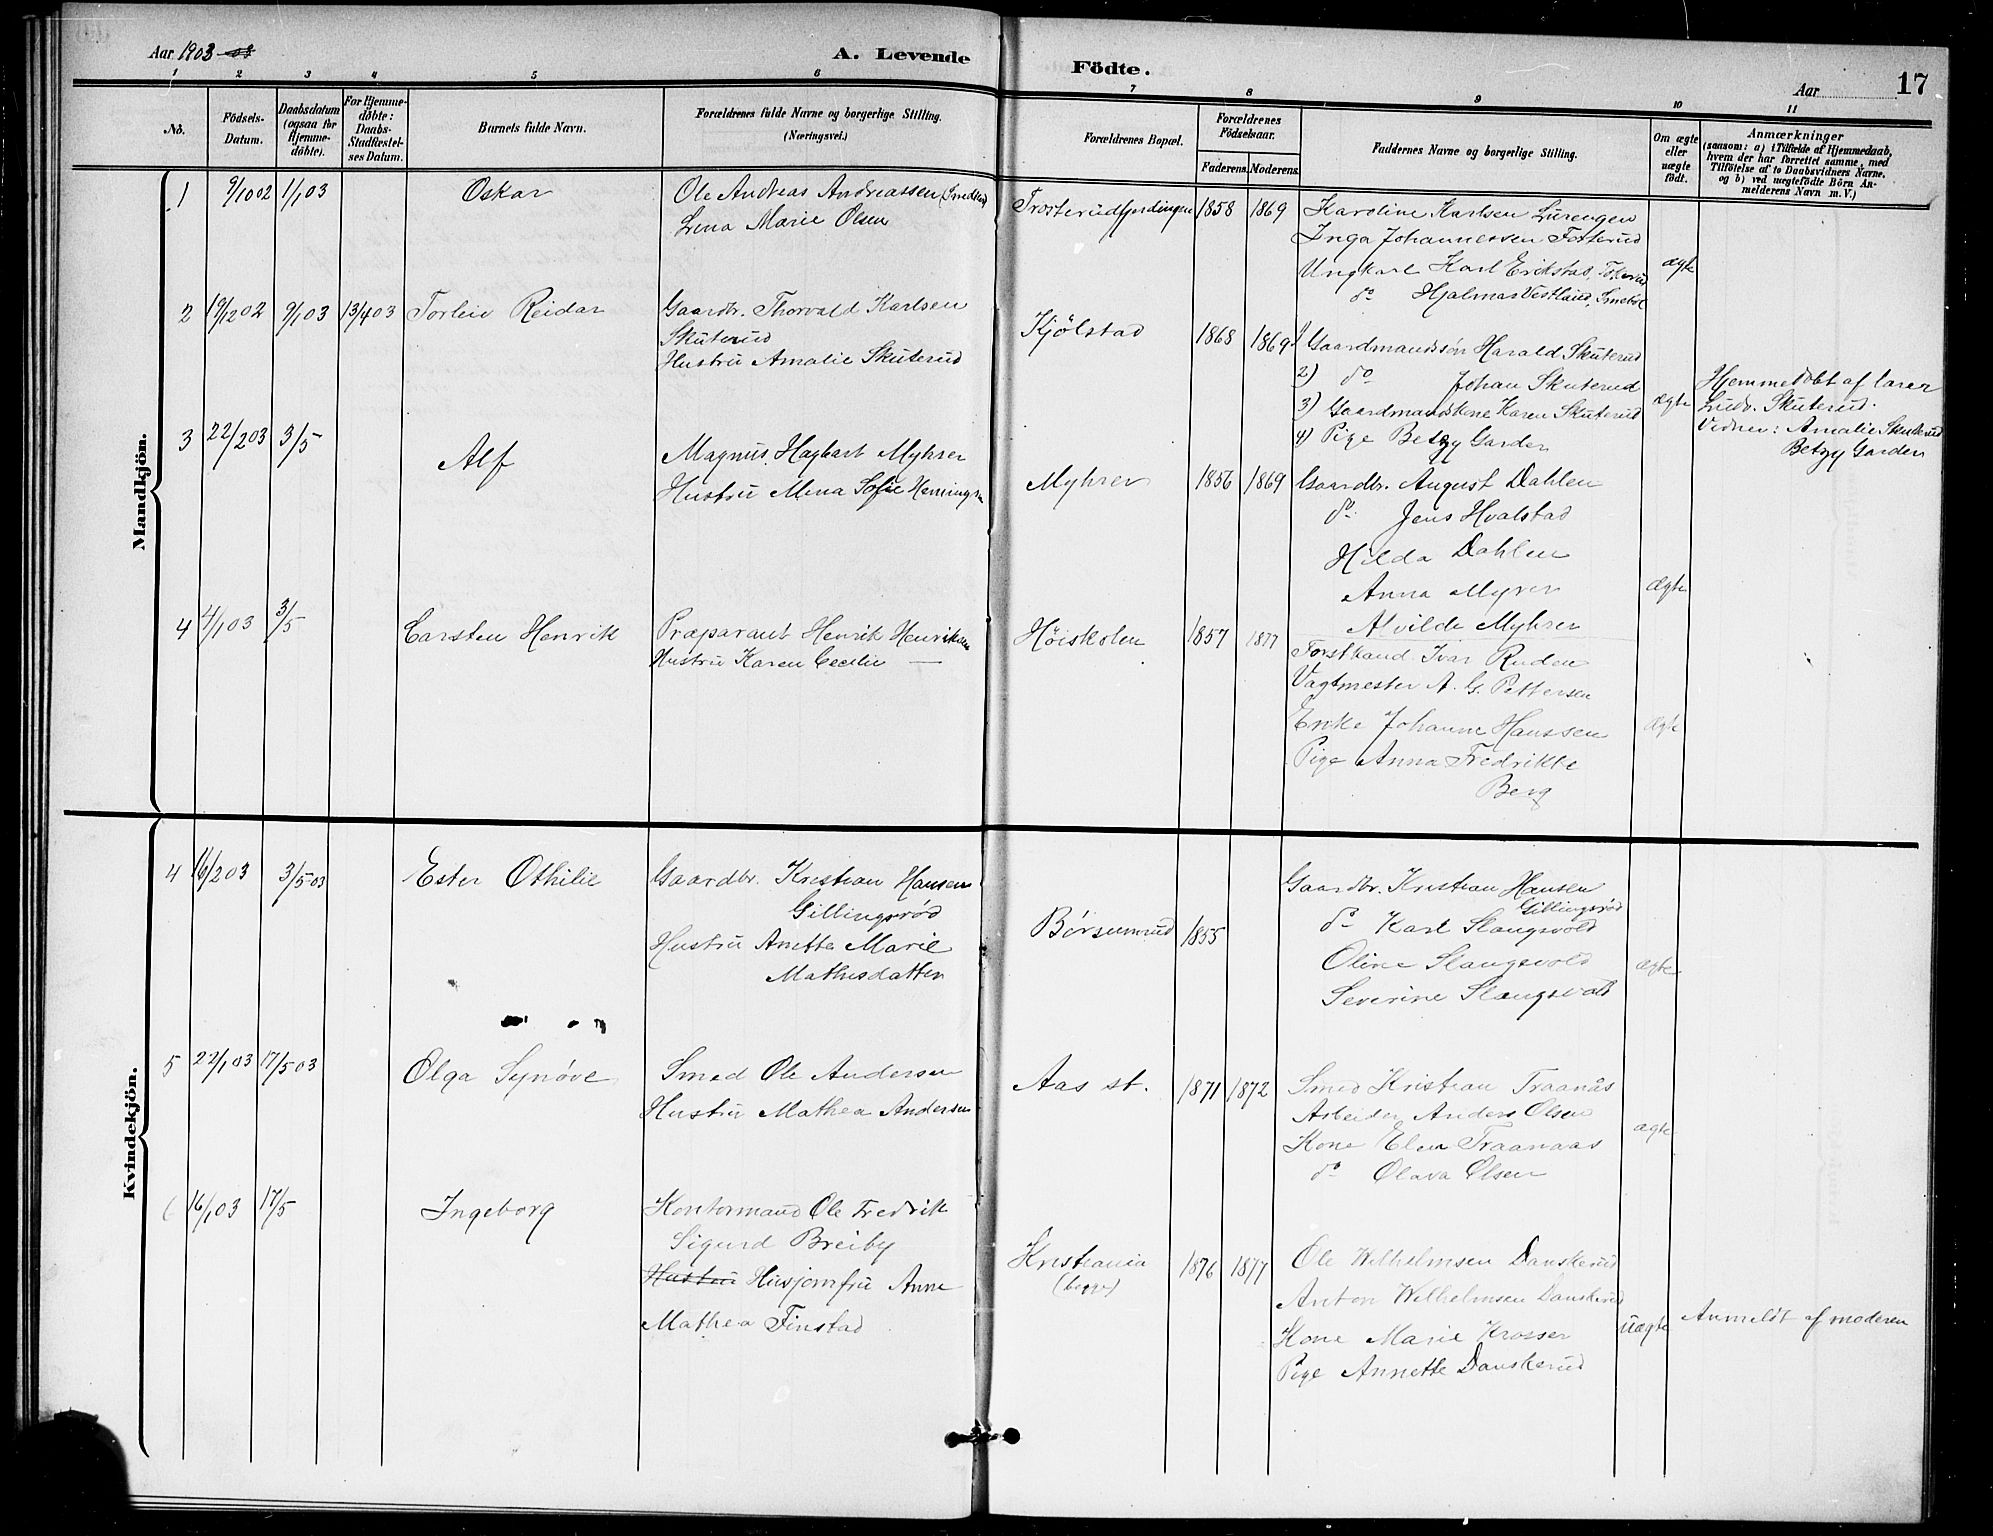 Aar 1903
A. Levende
Födte.
Aar
17
1 2 3 4 5 6 7 8 9 10 11
No.
Födsels-
Datum.
Daabsdatum
(ogsaa for
Hjemme-
döbte).
For Hjemme-
döbte:
Daabs-
Stadfæstel-
ses Datum.
Barnets fulde Navn.
Forældrenes fulde Navne og borgerlige Stilling.
(Næringsvei.)
Forældrenes Bopæl.
Forældrenes
Födselsaar.
Faderens.
Moderens.
Faddernes Navne og borgerlige Stilling.
Om ægte
eller
uægte
födt.
Anmærkninger
(saasom: a) i Tilfælde af Hjemmedaab,
hvem der har forrettet samme, med
Tilföielse af to Daabsvidners Navne.
og b) ved uægtefödte Börn An-
melderens Navn m. V.)
Mandkjön.
1 9/10 02 1/1 03 Oskar
Ole Andreas Andreassen
Lena Marie Olsen
Trosterudfjerdingen 1858 1869
Karoline Karlsen Lurengen
Inga Johannessen Fosterud
Ungkarl Karl Erikstad,
do Hjalmar Vestlund,
ægte
2 19/12 02 9/1 03 13/4 03 Torleiv Reidar
Gaardbr. Thorvald Karlsen
Skuterud
Hustru Amalie Skuterud
Kjölstad 1868 1869
1) Gaardmandssön Harald Skuterud
2) do Johan Skuterud
3) Gaardmandskone Karen Skuterud
4) Pige Betzy Garder
ægte
Hjemmedöbt af lærer
Ludv. Skuterud.
Vidner: Amalie Skuterud
Betzy Garder
3 22/2 03 3/5 Alf
Magnus Hagbart Myhrer
Hustru Mina Sofie Henningsen
Myhrer 1856 1869
Gaardbr. August Dahlen
do Jens Hvalstad
Hilda Dahlen
Anna Myrer
Alvilde Myhrer
Ægte
4 4/1 03 3/5 Carsten Henrik
Præparant Henrik Henriksen
Hustru Karen Cecilie —
Höiskolen 1857 1877
Forstkand. Ivar Ruden
Vagtmester A. G. Pettersen
Enke Johanne Hanssen
Pige Anna Fredrikke
Berg
Ægte
Kvindekjön.
4 16/2 03 3/5 03 Ester Othilie
Gaardbr. Kristian Hansen
Gillingsröd
Hustru Anette Marie
Mathisdatter
Börsumrud 1855
Gaardbr. Kristian Hansen
Gillingsröd
do Karl Slangsvold
Oline Slangsvold
Severine Slangsvold
ægte
5 22/1 03 17/5 03 Olga Synöve
Smed Ole Andersen
Hustru Mathea Andersen
Aas st. 1871 1872
Smed Kristian Traanås
Arbeider Anders Olsen
Kone Elen Traanaas
do Olava Olsen
ægte
6 16/1 03 17/5 Ingeborg
Kontormand Ole Fredrik
Sigurd Breiby
Hustru Husjomfru Anne
Mathea Finstad
Kristiania
(begge)
1876 1877
Ole Wilhelmsen Danskerud
Anton Wilhelmsen Danskerud
Kone Marie Krosser
Pige Annette Danskerud
uægte
Anmeldt af moderen